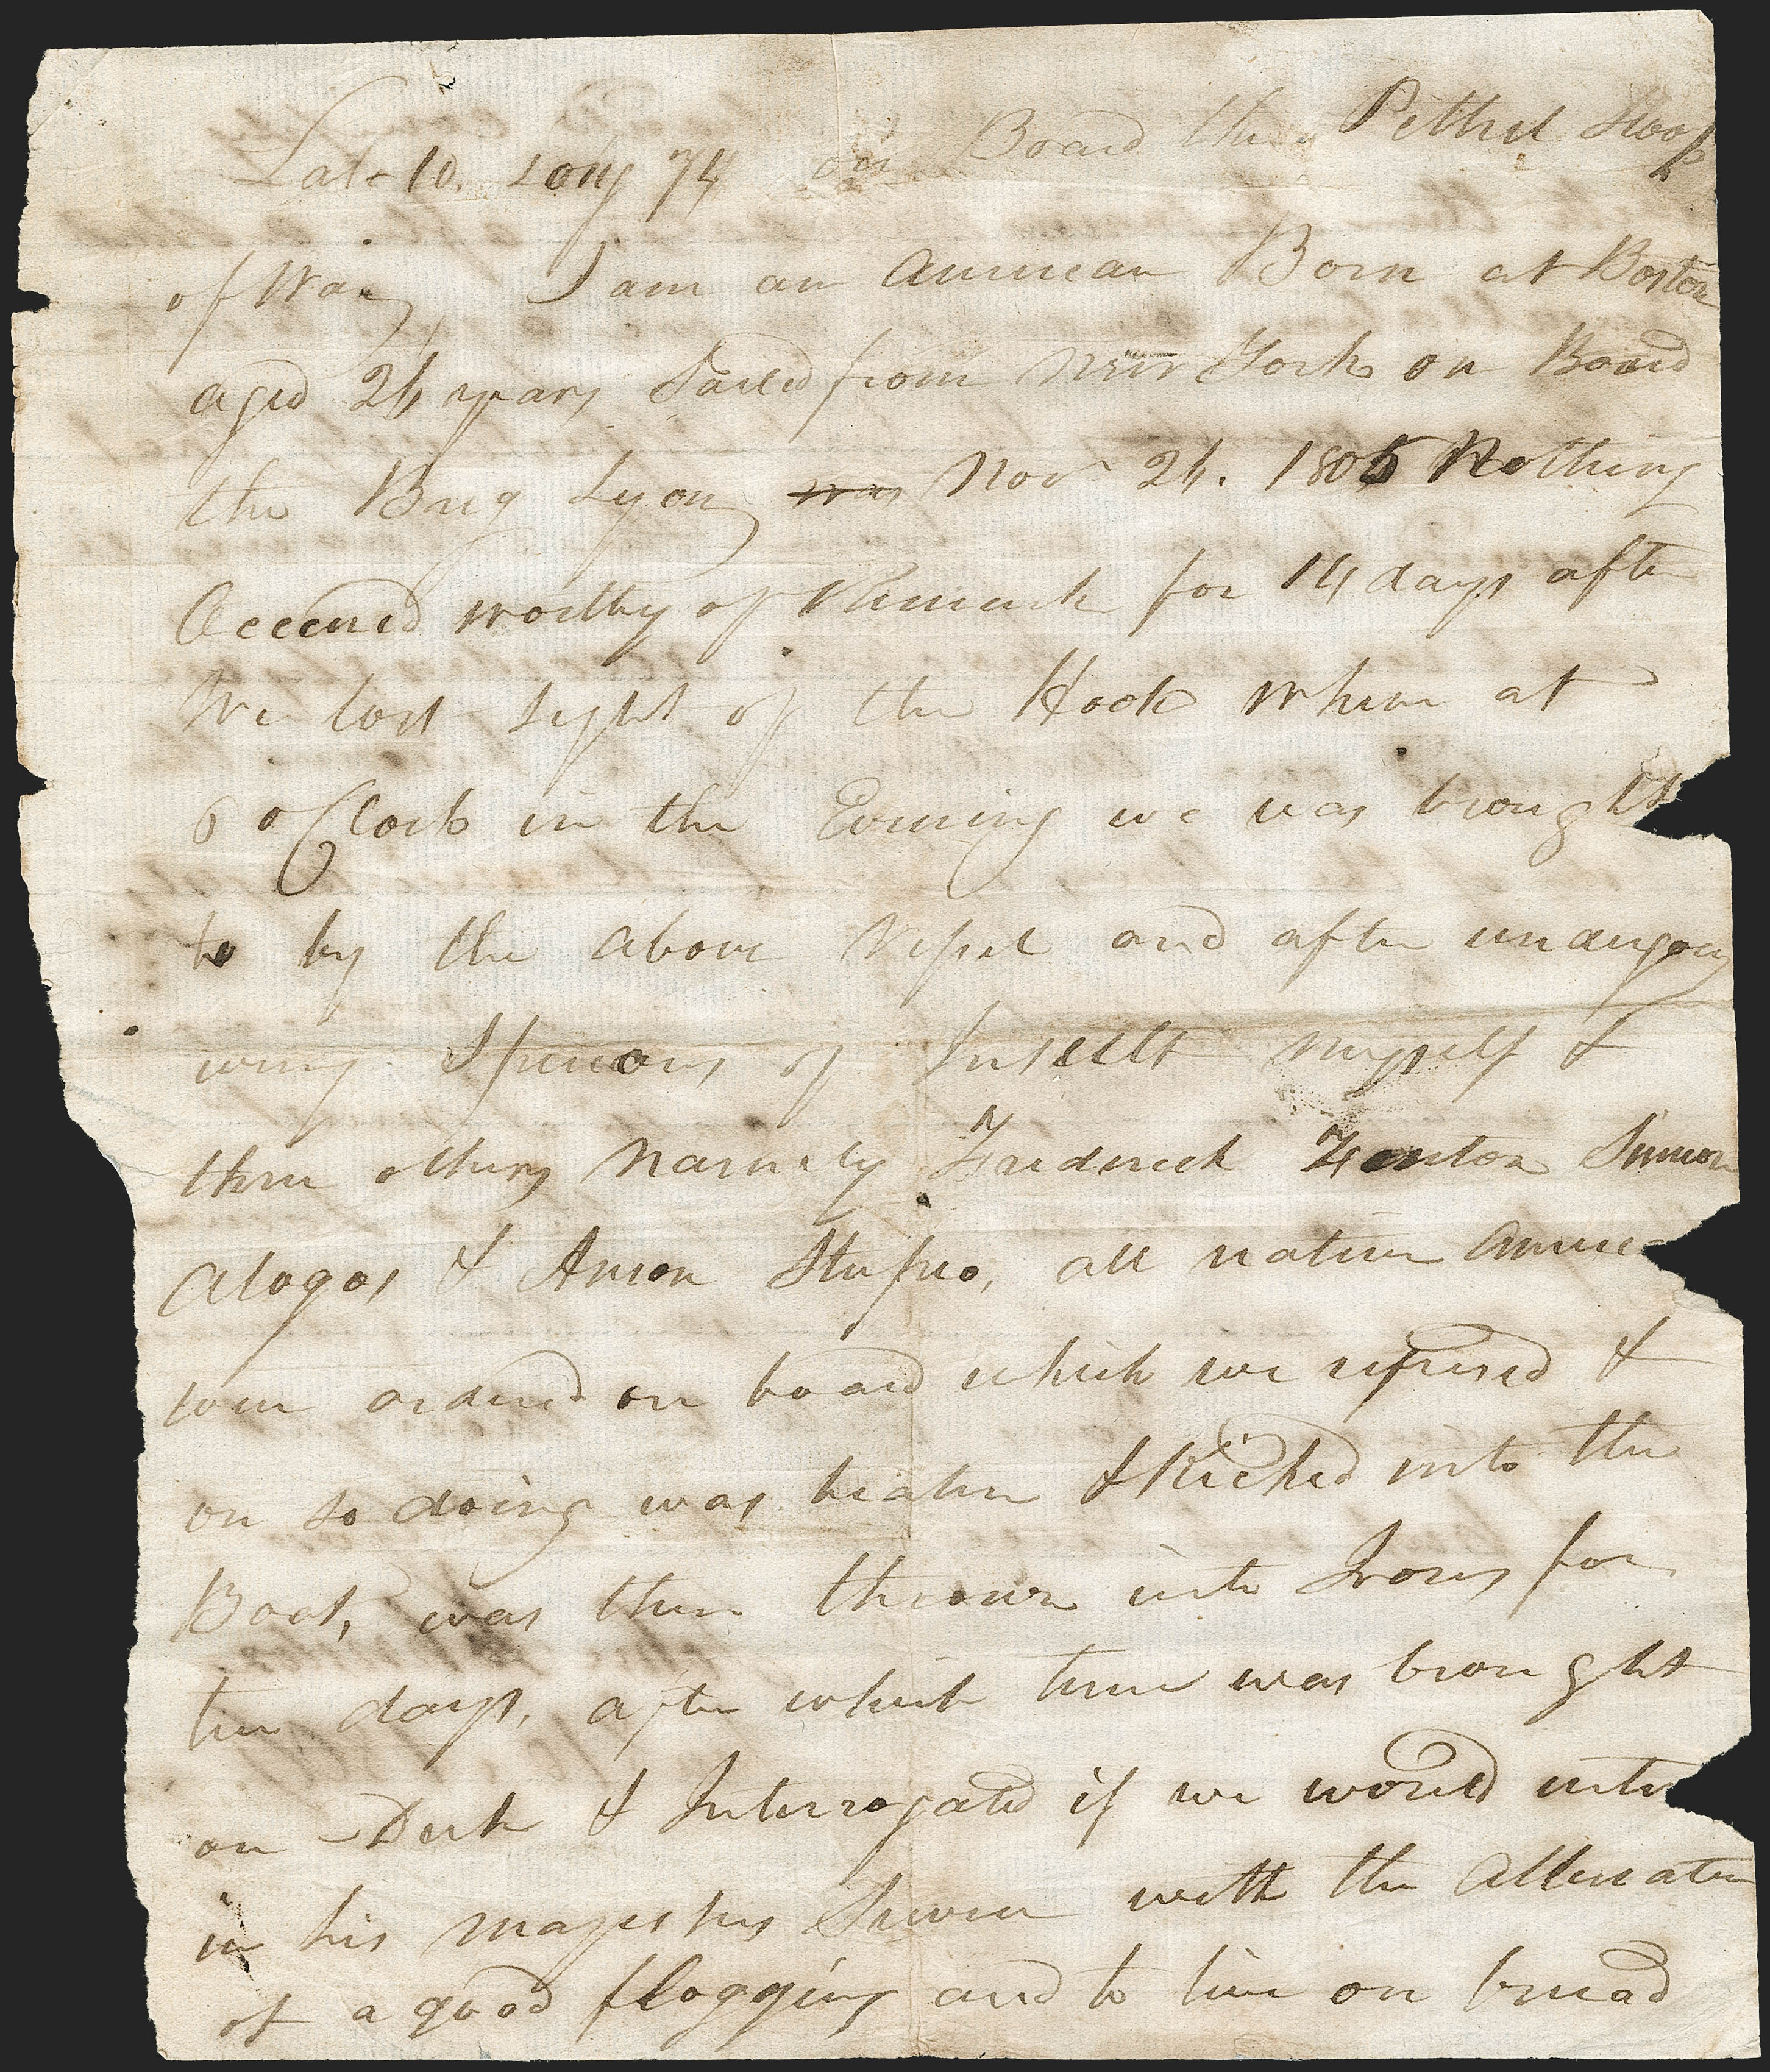 Lat 10. Long 74 on Board the Pethel Sloop
of War, I am an American Born at Boston
aged 26 years Sailed from New York on Board
the Brig Lyon, was Nov 26. 1806 Nothing
Occured worthy of Remark for 14 days after
We lost sight of the Hook when at
6 o Clock in the Evening we was brought
to by the above Vessel and after undergoing
every Specions of Insult myself &
three others namely Fredrick Zenton Simeon
Alogos & Anson Stupro, all native Americ
were ordered on board which we refused &
on so doing was beaten & Kicked into the
Boat, was then thrown into Irons for
ten days, after which time was brought
on Deck & Interrogated if we would enter
in his majestys Service with the Alternative
of a good flogging and to live on bread